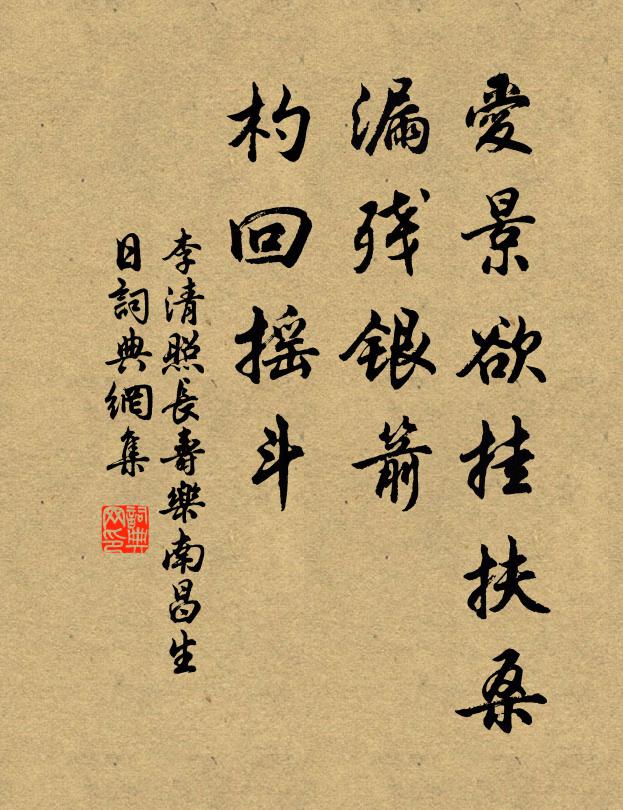 愛景欲挂扶桑
漏残銀箭
杓回摇斗
李清照長壽樂南昌生
日詞典網集
詞典
网印